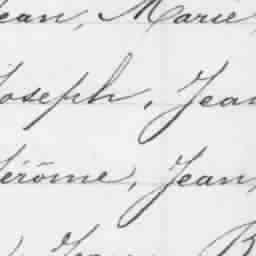 ean, Marie,
Joseph, Jean
Jérôme, Jean,